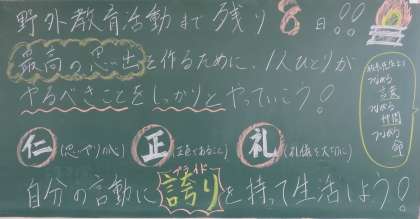 野外教育活動まで残り8日!!
最高の思い出を作るために、1人ひとりが
やるべきことをしっかりとやっていこう!
仁(思いやりの心) 正(正直であること) 礼(礼儀を大切に)
プライド
自分の言動に誇りを持って生活しよう!
つながる
言葉
つながる
仲間
つながる
命